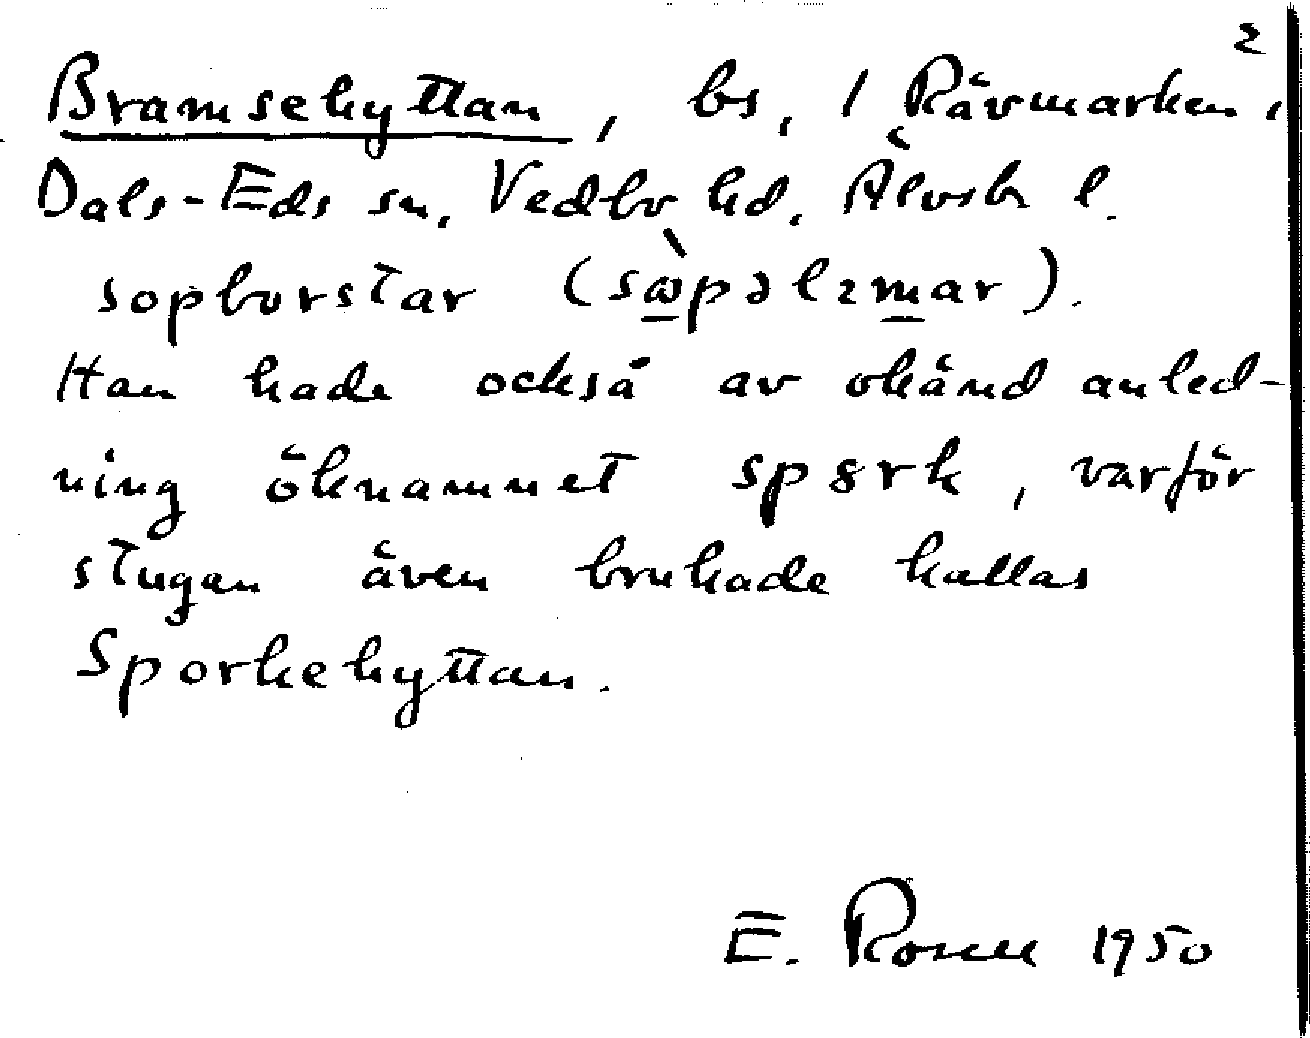 2
Bramsehyttan, bs, / Rävmarken,
Dals-Eds sn, Vedbo hd, Älvsb l.
sopborstar (sɷ̀pəlɩmar).
Han hade också av okänd anled-
ning öknamnet spɞrk, varför
stugan även brukade kallas
Sporkehyttan.
E. Rosell 1950